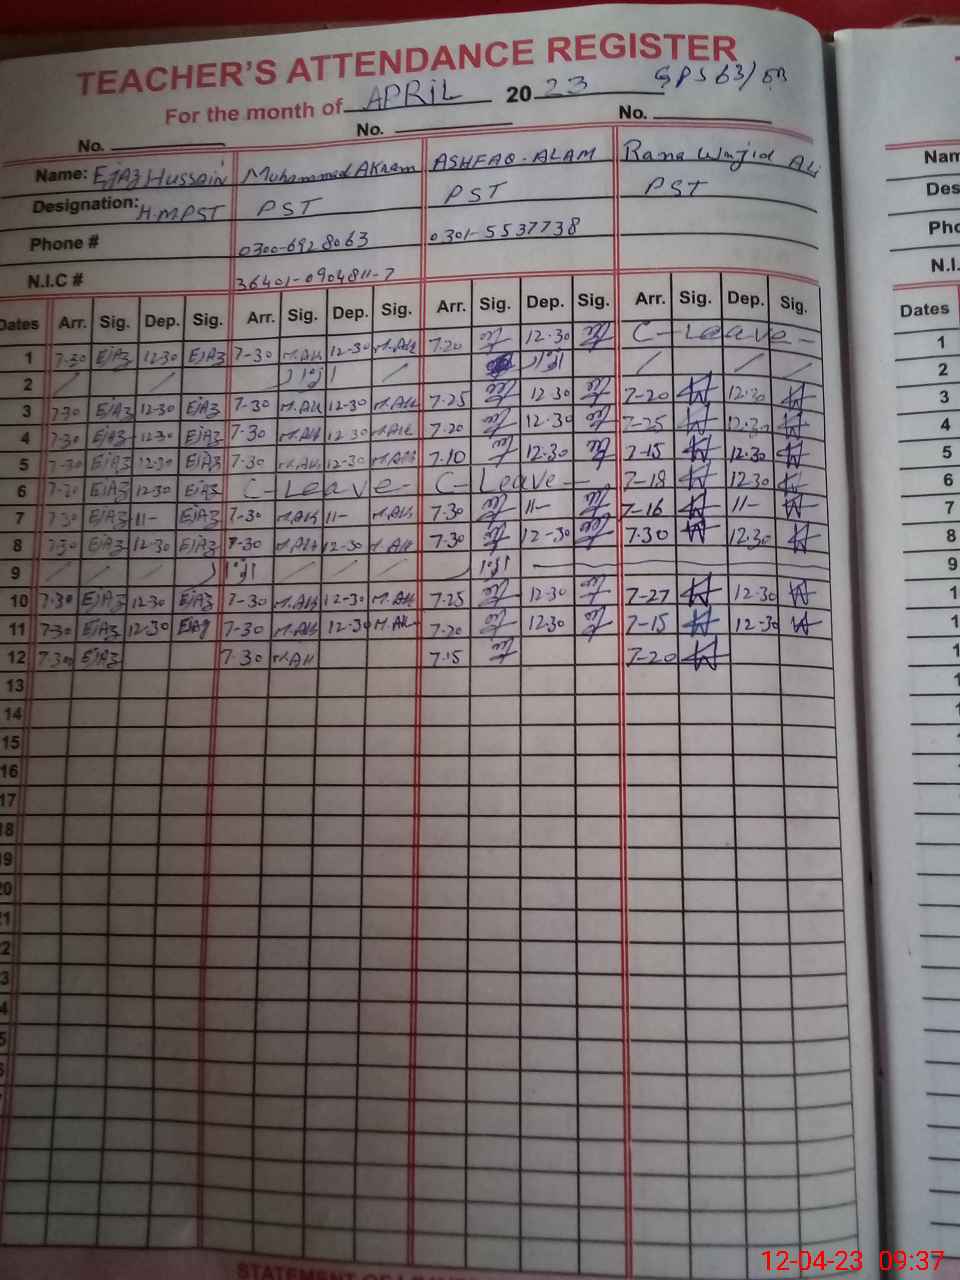 TEACHER'S ATTENDANCE REGISTER
For the month of APRIL 2023
No. No. No.
Name: EJAZ Hussain Muhammad AKram ASHFAQ-ALAM Rana Wajid Ali
Designation: H.M PST PST PST PST
Phone # 0300-6928063 0301-5537738
N.I.C # 36401-0904811-7
Dates Arr. Sig. Dep. Sig. Arr. Sig. Dep. Sig. Arr. Sig. Dep. Sig. Arr. Sig. Dep. Sig.
1 7-30 EJAZ 12-30 EJAZ 7-30 M.AK 12-30 M.AK 7.20 12.30 C-Leave-
2 اتوار اتوار
3 7-30 EJAZ 12-30 EJAZ 7-30 M.AK 12-30 M.AK 7.25 12.30 7-20 12.30
4 7-30 EJAZ 12-30 EJAZ 7-30 M.AK 12-30 M.AK 7.20 12.30 7-25 12.30
5 7-30 EJAZ 12-30 EJAZ 7-30 M.AK 12-30 M.AK 7.10 12.30 7-15 12.30
6 EJAZ 12-30 EJAZ C-Leave- C-Leave- 7-18 12.30
7 7-30 EJAZ 11- EJAZ 7-30 M.AK 11- M.AK 7.30 11- 7-16 11-
8 7-30 EJAZ 12-30 EJAZ 7-30 M.AK 12-30 M.AK 7.30 12-30 7.30 12.30
9 اتوار اتوار
10 7-30 EJAZ 12-30 EJAZ 7-30 M.AK 12-30 M.AK 7.25 12.30 7-27 12-30
11 7-30 EJAZ 12-30 EJAZ 7-30 M.AK 12-30 M.AK 7.20 12.30 7-15 12-30
12 7-30 EJAZ 7-30 M.AK 7.15 7-20
13
14
15
16
17
18
19
20
21
22
Nam
Des
Pho
N.I.
Dates
1
2
3
4
5
6
7
8
9
12-04-23 09:37